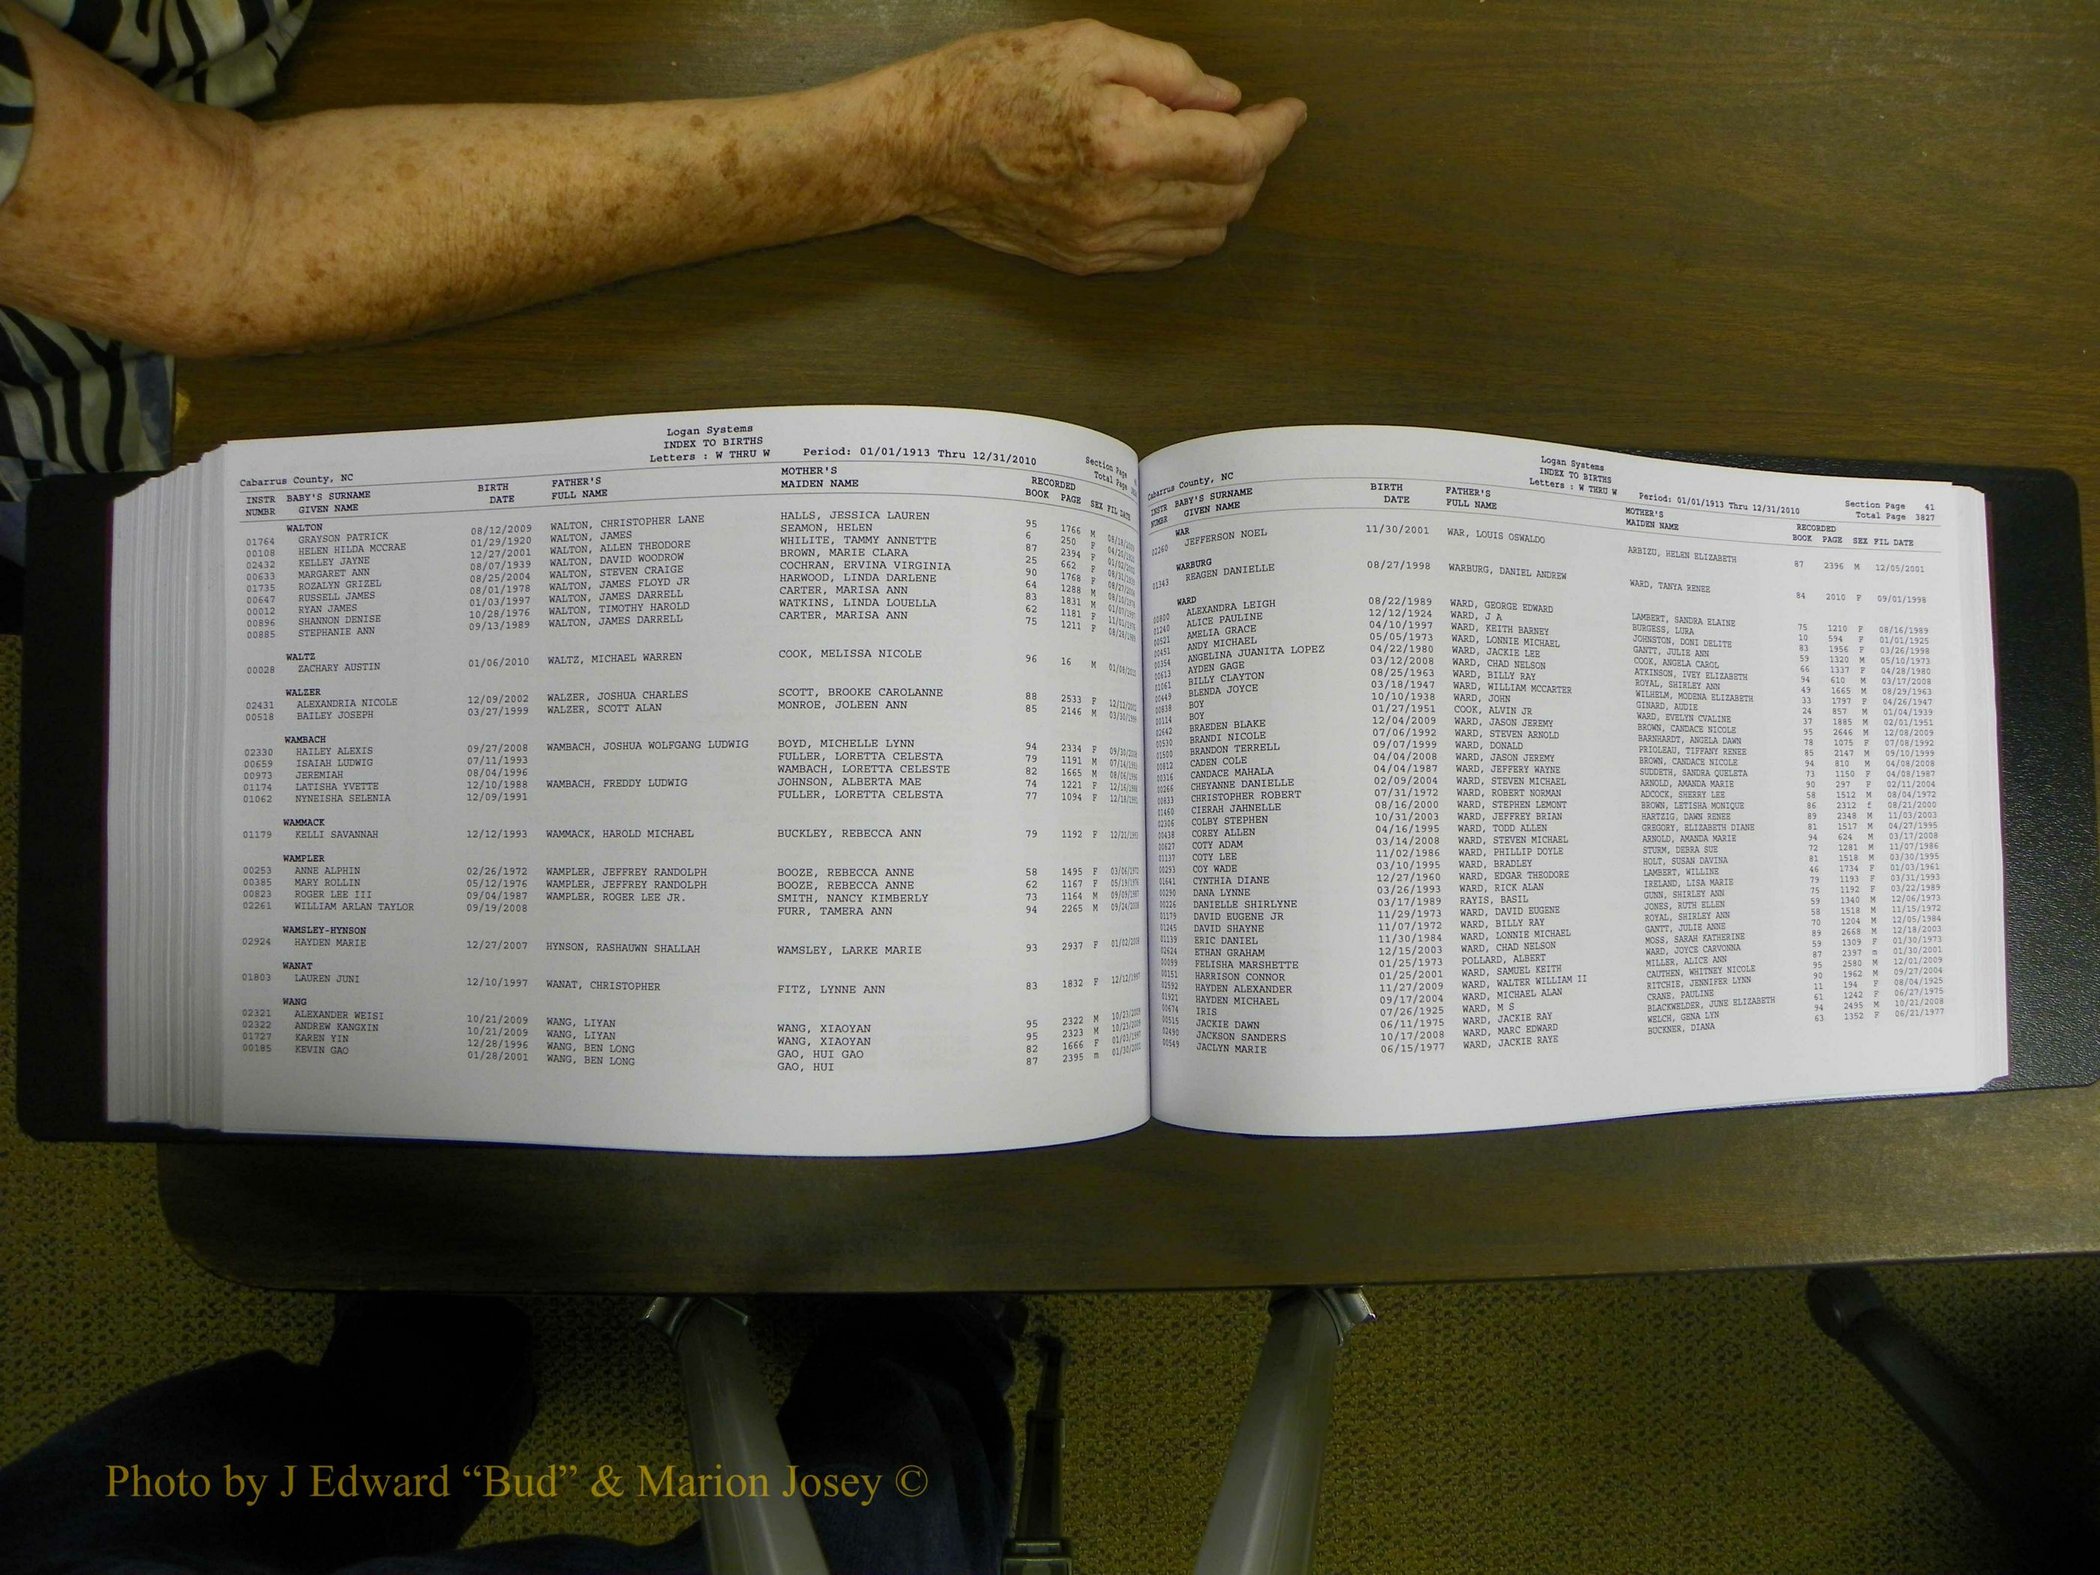 Logan Systems
INDEX TO BIRTHS
Letters : W THRU W Period: 01/01/1913 Thru 12/31/2010
Section Page
Total Page
Cabarrus County, NC
INSTR NUMBR BABY'S SURNAME GIVEN NAME BIRTH DATE FATHER'S FULL NAME MOTHER'S MAIDEN NAME RECORDED BOOK PAGE SEX FIL DATE
WALTON
01764 GRAYSON PATRICK 08/12/2009 WALTON, CHRISTOPHER LANE HALLS, JESSICA LAUREN 95 1766 M 08/18/2009
00108 HELEN HILDA MCCRAE 01/29/1920 WALTON, JAMES SEAMON, HELEN 6 250 F 04/20/1920
02432 KELLEY JAYNE 12/27/2001 WALTON, ALLEN THEODORE WHILITE, TAMMY ANNETTE 87 2394 F 01/02/2002
00633 MARGARET ANN 08/07/1939 WALTON, DAVID WOODROW BROWN, MARIE CLARA 25 662 F 08/31/1939
01735 ROZALYN GRIZEL 08/25/2004 WALTON, STEVEN CRAIGE COCHRAN, ERVINA VIRGINIA 90 1768 F 08/27/2004
00647 RUSSELL JAMES 08/01/1978 WALTON, JAMES FLOYD JR HARWOOD, LINDA DARLENE 64 1288 M 08/10/1978
00012 RYAN JAMES 01/03/1997 WALTON, JAMES DARRELL CARTER, MARISA ANN 83 1831 M 01/07/1997
00896 SHANNON DENISE 10/28/1976 WALTON, TIMOTHY HAROLD WATKINS, LINDA LOUELLA 62 1181 F 11/01/1976
00885 STEPHANIE ANN 09/13/1989 WALTON, JAMES DARRELL CARTER, MARISA ANN 75 1211 F
WALTZ
00028 ZACHARY AUSTIN 01/06/2010 WALTZ, MICHAEL WARREN COOK, MELISSA NICOLE 96 16 M 01/08/2010
WALZER
02431 ALEXANDRIA NICOLE 12/09/2002 WALZER, JOSHUA CHARLES SCOTT, BROOKE CAROLANNE 88 2533 F 12/12/2002
00518 BAILEY JOSEPH 03/27/1999 WALZER, SCOTT ALAN MONROE, JOLEEN ANN 85 2146 M 03/30/1999
WAMBACH
02330 HAILEY ALEXIS 09/27/2008 WAMBACH, JOSHUA WOLFGANG LUDWIG BOYD, MICHELLE LYNN 94 2334 F 09/30/2008
00659 ISAIAH LUDWIG 07/11/1993 FULLER, LORETTA CELESTA 79 1191 M 07/14/1993
00973 JEREMIAH 08/04/1996 WAMBACH, LORETTA CELESTE 82 1665 M 08/06/1996
01174 LATISHA YVETTE 12/10/1988 WAMBACH, FREDDY LUDWIG JOHNSON, ALBERTA MAE 74 1221 F 12/16/1988
01062 NYNEISHA SELENIA 12/09/1991 FULLER, LORETTA CELESTA 77 1094 F 12/18/1991
WAMMACK
01179 KELLI SAVANNAH 12/12/1993 WAMMACK, HAROLD MICHAEL BUCKLEY, REBECCA ANN 79 1192 F 12/21/1993
WAMPLER
00253 ANNE ALPHIN 02/26/1972 WAMPLER, JEFFREY RANDOLPH BOOZE, REBECCA ANNE 58 1495 F 03/06/1972
00385 MARY ROLLIN 05/12/1976 WAMPLER, JEFFREY RANDOLPH BOOZE, REBECCA ANNE 62 1167 F 05/19/1976
00823 ROGER LEE III 09/04/1987 WAMPLER, ROGER LEE JR. SMITH, NANCY KIMBERLY 73 1164 M 09/09/1987
02261 WILLIAM ARLAN TAYLOR 09/19/2008 FURR, TAMERA ANN 94 2265 M 09/24/2008
WAMSLEY-HYNSON
02924 HAYDEN MARIE 12/27/2007 HYNSON, RASHAUWN SHALLAH WAMSLEY, LARKE MARIE 93 2937 F 01/02/2008
WANAT
01803 LAUREN JUNI 12/10/1997 WANAT, CHRISTOPHER FITZ, LYNNE ANN 83 1832 F 12/12/1997
WANG
02321 ALEXANDER WEISI 10/21/2009 WANG, LIYAN WANG, XIAOYAN 95 2322 M 10/23/2009
02322 ANDREW KANGXIN 10/21/2009 WANG, LIYAN WANG, XIAOYAN 95 2323 M 10/23/2009
01727 KAREN YIN 12/28/1996 WANG, BEN LONG GAO, HUI GAO 82 1666 F 01/03/1997
00185 KEVIN GAO 01/28/2001 WANG, BEN LONG GAO, HUI 87 2395 m 01/30/2001
Logan Systems
INDEX TO BIRTHS
Letters : W THRU W Period: 01/01/1913 Thru 12/31/2010
Section Page 41
Total Page 3827
Cabarrus County, NC
INSTR NUMBR BABY'S SURNAME GIVEN NAME BIRTH DATE FATHER'S FULL NAME MOTHER'S MAIDEN NAME RECORDED BOOK PAGE SEX FIL DATE
WAR
02260 JEFFERSON NOEL 11/30/2001 WAR, LOUIS OSWALDO ARBIZU, HELEN ELIZABETH 87 2396 M 12/05/2001
WARBURG
01343 REAGEN DANIELLE 08/27/1998 WARBURG, DANIEL ANDREW WARD, TANYA RENEE 84 2010 F 09/01/1998
WARD
00800 ALEXANDRA LEIGH 08/22/1989 WARD, GEORGE EDWARD LAMBERT, SANDRA ELAINE 75 1210 F 08/16/1989
01240 ALICE PAULINE 12/12/1924 WARD, J A BURGESS, LURA 10 594 F 01/01/1925
00521 AMELIA GRACE 04/10/1997 WARD, KEITH BARNEY JOHNSTON, DONI DELITE 83 1956 F 03/26/1998
00451 ANDY MICHAEL 05/05/1973 WARD, LONNIE MICHAEL GANTT, JULIE ANN 59 1320 M 05/10/1973
00354 ANGELINA JUANITA LOPEZ 04/22/1980 WARD, JACKIE LEE COOK, ANGELA CAROL 66 1337 F 04/28/1980
00613 AYDEN GAGE 03/12/2008 WARD, CHAD NELSON ATKINSON, IVEY ELIZABETH 94 610 M 03/17/2008
01061 BILLY CLAYTON 08/25/1963 WARD, BILLY RAY ROYAL, SHIRLEY ANN 49 1665 M 08/29/1963
00449 BLENDA JOYCE 03/18/1947 WARD, WILLIAM MCCARTER WILHELM, MODENA ELIZABETH 33 1797 F 04/26/1947
00838 BOY 10/10/1938 WARD, JOHN GINARD, AUDIE 24 857 M 01/04/1939
00114 BOY 01/27/1951 COOK, ALVIN JR WARD, EVELYN CVALINE 37 1885 M 02/01/1951
02642 BRAEDEN BLAKE 12/04/2009 WARD, JASON JEREMY BROWN, CANDACE NICOLE 95 2646 M 12/08/2009
00530 BRANDI NICOLE 07/06/1992 WARD, STEVEN ARNOLD BARNHARDT, ANGELA DAWN 78 1075 F 07/08/1992
01500 BRANDON TERRELL 09/07/1999 WARD, DONALD PRIOLEAU, TIFFANY RENEE 85 2147 M 09/10/1999
00812 CADEN COLE 04/04/2008 WARD, JASON JEREMY BROWN, CANDACE NICOLE 94 810 M 04/08/2008
00316 CANDACE MAHALA 04/04/1987 WARD, JEFFERY WAYNE SUDDETH, SANDRA QUELETA 73 1150 F 04/08/1987
00266 CHEYANNE DANIELLE 02/09/2004 WARD, STEVEN MICHAEL ARNOLD, AMANDA MARIE 90 297 F 02/11/2004
00833 CHRISTOPHER ROBERT 07/31/1972 WARD, ROBERT NORMAN ADCOCK, SHERRY LEE 58 1512 M 08/04/1972
01460 CIERAH JAHNELLE 08/16/2000 WARD, STEPHEN LEMONT BROWN, LETISHA MONIQUE 86 2312 f 08/21/2000
02306 COLBY STEPHEN 10/31/2003 WARD, JEFFREY BRIAN HARTZIG, DAWN RENEE 89 2348 M 11/03/2003
00438 COREY ALLEN 04/16/1995 WARD, TODD ALLEN GREGORY, ELIZABETH DIANE 81 1517 M 04/27/1995
00627 COTY ADAM 03/14/2008 WARD, STEVEN MICHAEL ARNOLD, AMANDA MARIE 94 624 M 03/17/2008
01137 COTY LEE 11/02/1986 WARD, PHILLIP DOYLE STURM, DEBRA SUE 72 1281 M 11/07/1986
00293 COY WADE 03/10/1995 WARD, BRADLEY HOLT, SUSAN DAVINA 81 1518 M 03/30/1995
01641 CYNTHIA DIANE 12/27/1960 WARD, EDGAR THEODORE LAMBERT, WILLINE 46 1734 F 01/03/1961
00290 DANA LYNNE 03/26/1993 WARD, RICK ALAN IRELAND, LISA MARIE 79 1193 F 03/31/1993
00226 DANIELLE SHIRLYNE 03/17/1989 RAYIS, BASIL GUNN, SHIRLEY ANN 75 1192 F 03/22/1989
01179 DAVID EUGENE JR 11/29/1973 WARD, DAVID EUGENE JONES, RUTH ELLEN 59 1340 M 12/06/1973
01245 DAVID SHAYNE 11/07/1972 WARD, BILLY RAY ROYAL, SHIRLEY ANN 58 1518 M 11/15/1972
01139 ERIC DANIEL 11/30/1984 WARD, LONNIE MICHAEL GANTT, JULIE ANNE 70 1204 M 12/05/1984
02624 ETHAN GRAHAM 12/15/2003 WARD, CHAD NELSON MOSS, SARAH KATHERINE 89 2668 M 12/18/2003
00099 FELISHA MARSHETTE 01/25/1973 POLLARD, ALBERT WARD, JOYCE CARVONNA 59 1309 F 01/30/1973
00151 HARRISON CONNOR 01/25/2001 WARD, SAMUEL KEITH MILLER, ALICE ANN 87 2397 m 01/30/2001
02592 HAYDEN ALEXANDER 11/27/2009 WARD, WALTER WILLIAM II CAUTHEN, WHITNEY NICOLE 95 2580 M 12/01/2009
01921 HAYDEN MICHAEL 09/17/2004 WARD, MICHAEL ALAN RITCHIE, JENNIFER LYNN 90 1962 M 09/27/2004
00674 IRIS 07/26/1925 WARD, M S CRANE, PAULINE 11 194 F 08/04/1925
00515 JACKIE DAWN 06/11/1975 WARD, JACKIE RAY BLACKWELDER, JUNE ELIZABETH 61 1242 F 06/27/1975
02490 JACKSON SANDERS 10/17/2008 WARD, MARC EDWARD WELCH, GENA LYN 94 2495 M 10/21/2008
00549 JACLYN MARIE 06/15/1977 WARD, JACKIE RAYE BUCKNER, DIANA 63 1352 F 06/21/1977
Photo by J Edward “Bud” & Marion Josey ©